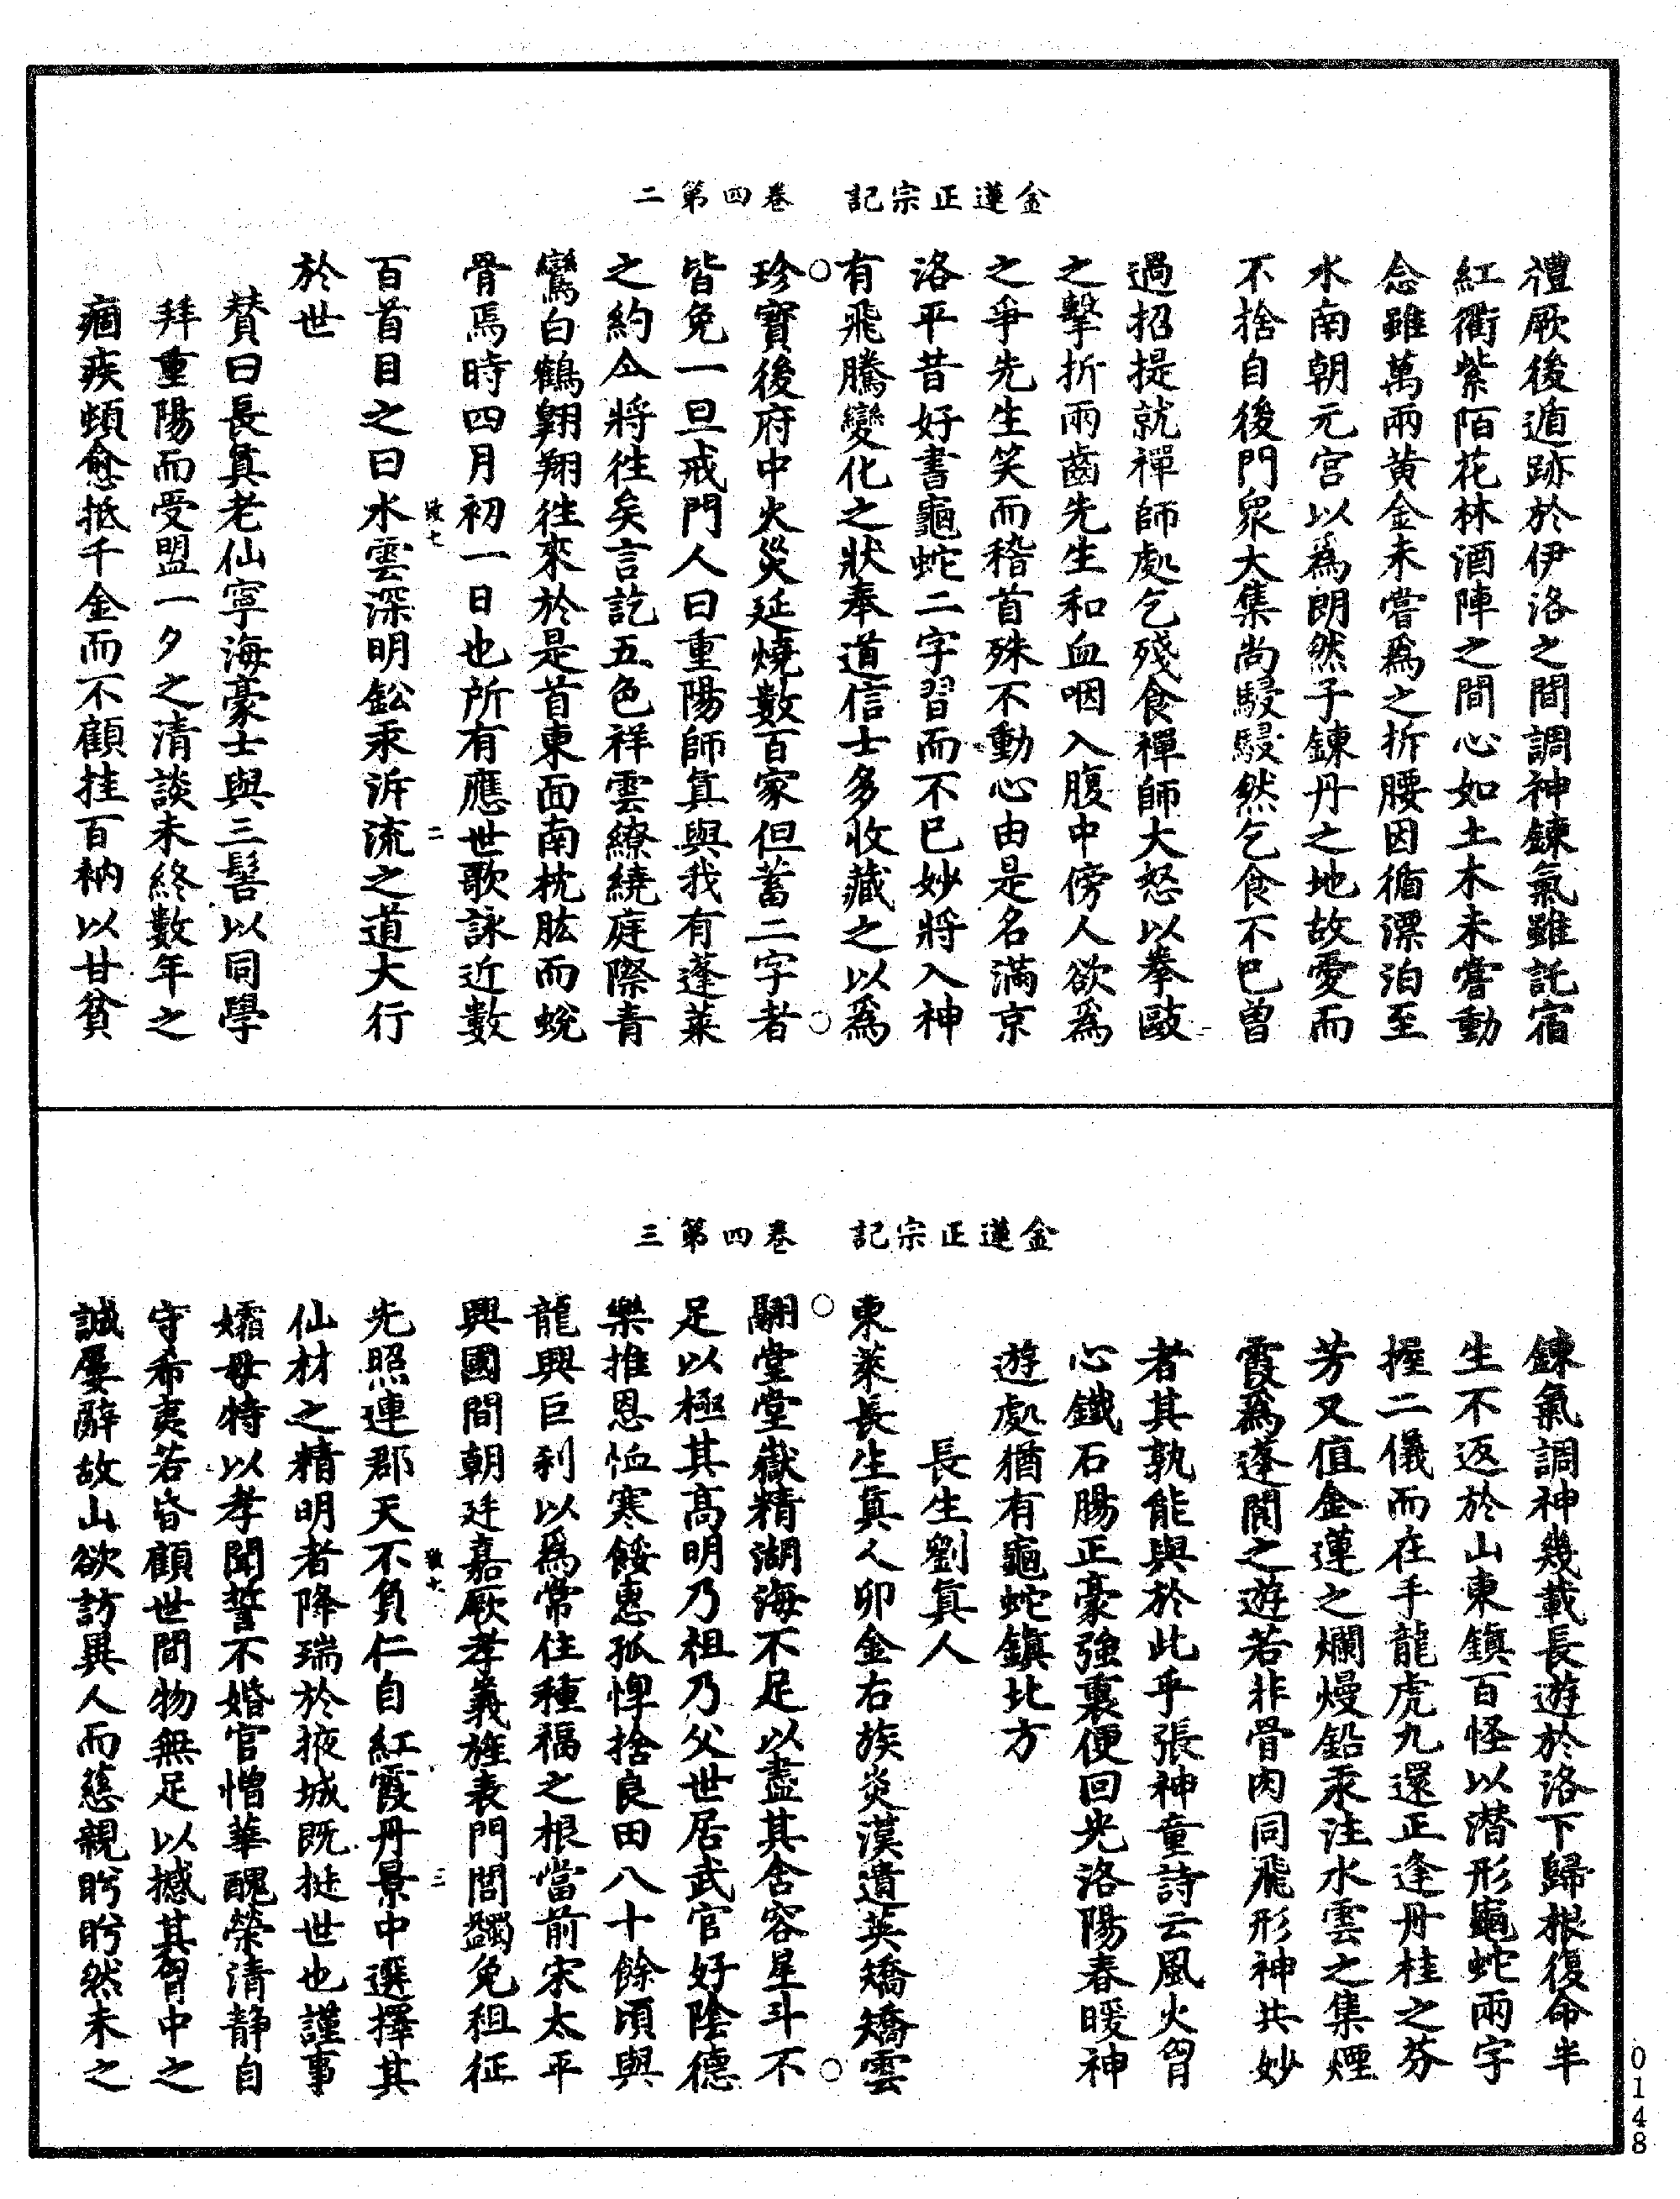 金蓮正宗記　卷四第二
禮厥後遁跡於伊洛之間調神鍊氣雖託宿
紅衢紫陌花林酒陣之間心如土木未嘗動
念雖萬兩黃金未嘗爲之折腰因循漂泊至
水南朝元宮以爲朗然子鍊丹之地故愛而
不捨自後門衆大集尚駸駸然乞食不已曾
過招提就禪師處乞殘食禪師大怒以拳毆
之擊折兩齒先生和血咽入腹中傍人欲爲
之爭先生笑而稽首殊不動心由是名滿京
洛平昔好書龜蛇二字習而不已妙將入神
有飛騰變化之狀奉道信士多收藏之以爲
珍寶後府中火災延燒數百家但蓄二字者
皆免一旦戒門人曰重陽師眞與我有蓬萊
之約今將往矣言訖五色祥雲繚繞庭際青
鸞白鶴翱翔往來於是首東面南枕肱而蛻
骨焉時四月初一日也所有應世歌詠近數
百首目之曰水雲深明鈆汞泝流之道大行
於世
贊曰長眞老仙寧海豪士與三髻以同學
拜重陽而受盟一夕之清談未終數年之
痼疾頓愈抵千金而不顧挂百衲以甘貧
金蓮正宗記　卷四第三
鍊氣調神幾載長遊於洛下歸根復命半
生不返於山東鎭百怪以潜形龜蛇兩字
握二儀而在手龍虎九還正逢丹桂之芬
芳又值金蓮之爛熳鉛汞注水雲之集煙
霞爲蓬閬之遊若非骨肉同飛形神共妙
者其孰能與於此乎張神童詩云風火胷
心鐵石腸正豪強裏便回光洛陽春暖神
遊處猶有龜蛇鎭北方
長生劉眞人
東萊長生眞人卯金右族炎漢遺英矯矯雲
翮堂堂嶽精湖海不足以盡其含容星斗不
足以極其高明乃祖乃父世居武官好陰德
樂推恩恤寒餒惠孤惸捨良田八十餘頃與
龍興巨刹以爲常住種福之根當前宋太平
興國間朝廷嘉厥孝義旌表門閭蠲免租征
先照連郡天不負仁自紅霞丹景中選擇其
仙材之精明者降瑞於掖城既挺世也謹事
孀母特以孝聞誓不婚官憎華醜榮清静自
守希夷若昏顧世間物無足以撼其胷中之
誠屢辭故山欲訪異人而慈親眄眄然未之
0148